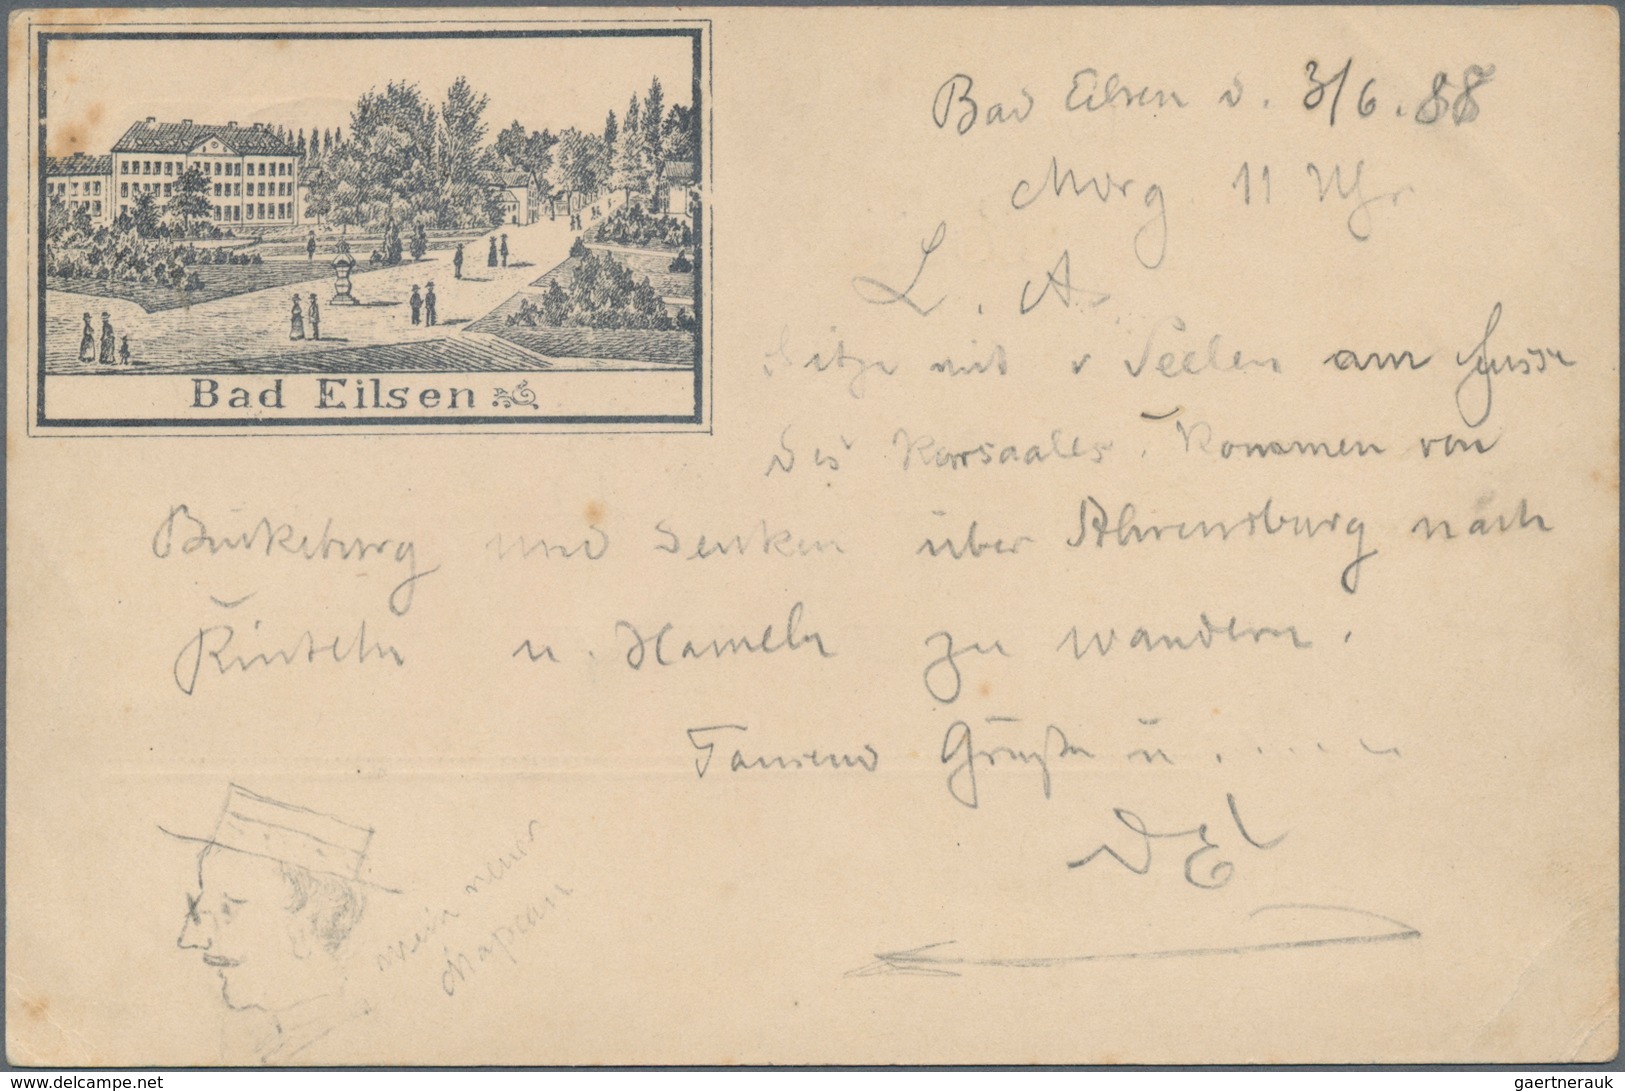 Bad Eilsen d. 3/6. 88
Morg 11 Uhr
L. A.
Bad Eilsen
Sitze mit v Seelen am Fusse
des Kursaales. Kommen von
Bückeburg und denken über Ahrensburg nach
Rinteln u. Hameln zu wandern.
Tausend Grüße u. ....
mein neuer
chapeau
www.delcampe.net
gaertnerauk